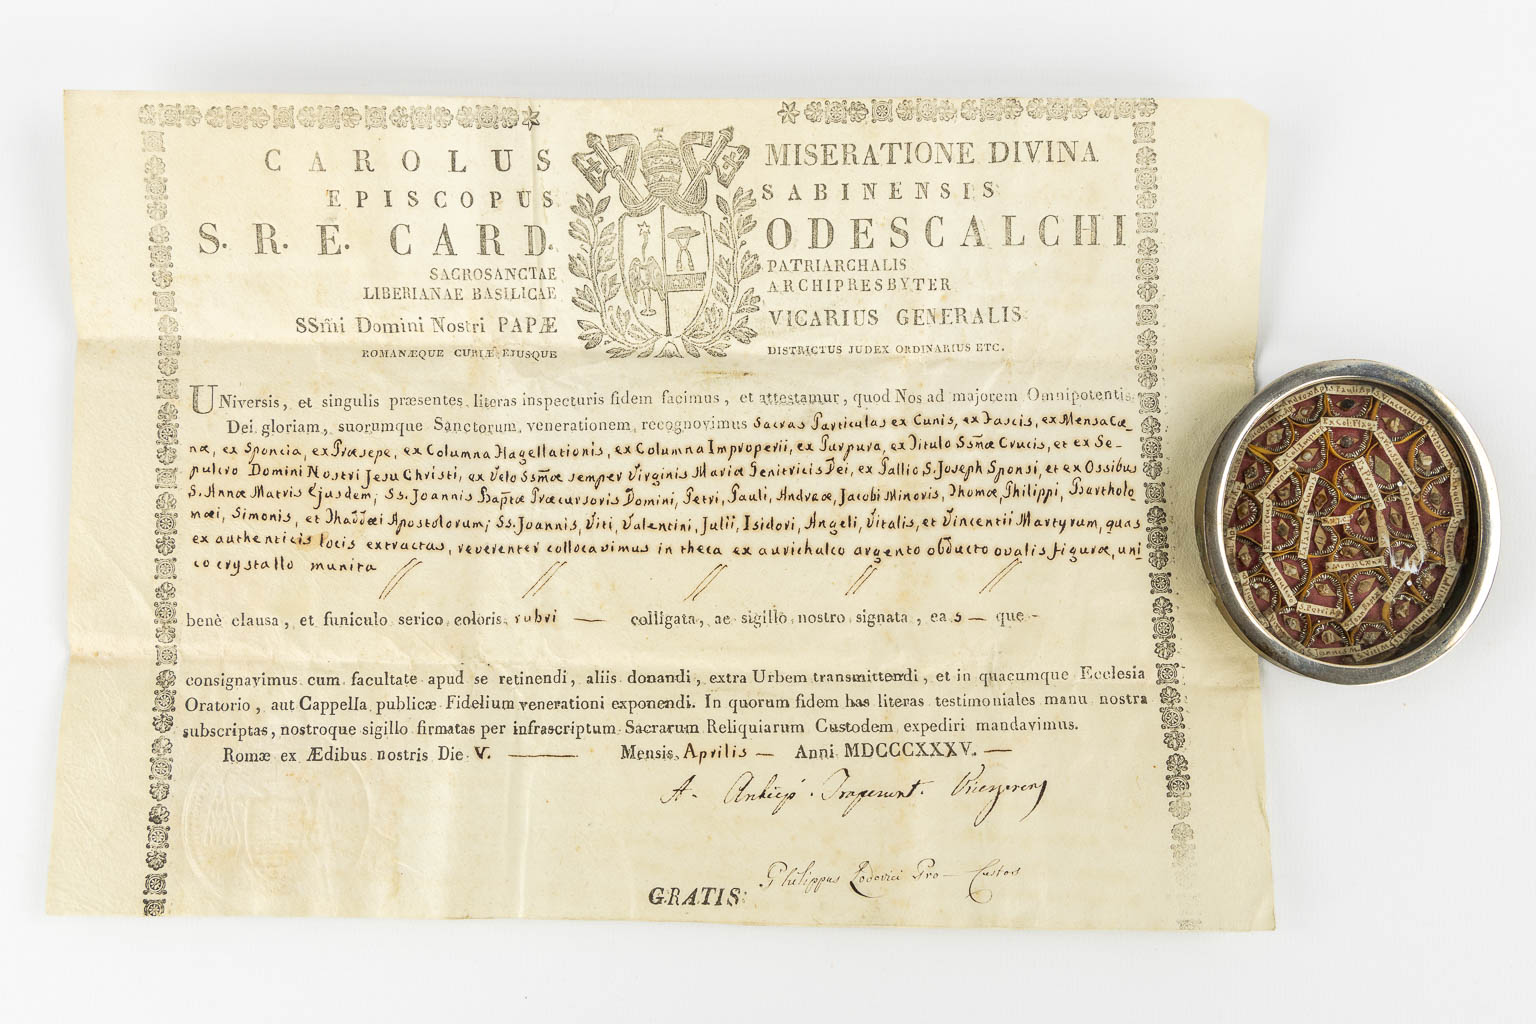 CAROLUS MISERATIONE DIVINA
EPISCOPUS SABINENSIS
S. R. E. CARD. ODESCALCHI
SACROSANCTAE PATRIARCHALIS
LIBERIANAE BASILICAE ARCHIPRESBYTER
SSm̃i Domini Nostri PAPÆ VICARIUS GENERALIS
ROMANÆQUE CURIÆ EJUSQUE DISTRICTUS JUDEX ORDINARIUS ETC.
UNiversis, et singulis præsentes literas inspecturis fidem facimus, et attestamur, quod Nos ad majorem Omnipotentis
Dei gloriam, suorumque Sanctorum venerationem recognovimus Sacras Particulas ex Cunis, ex Fascis, ex Mensa Cœ
næ, ex Sponcia, ex Præsepe, ex Columna Flagellationis, ex Columna Improperii, ex Purpura, ex Titulo Ssmæ Crucis, et ex Se-
pulcro Domini Nostri Jesu Christi, ex Velo Ssmæ semper Virginis Mariæ Genitricis Dei, ex Pallio S. Joseph Sponsi, et ex Ossibus
S. Annæ Matris Ejusdem; Ss. Joannis Baptæ Præcursoris Domini, Petri, Pauli, Andreæ, Jacobi Minoris, Thomæ, Philippi, Bartholo
mæi, Simonis, et Thaddæi Apostolorum; Ss. Joannis, Viti, Valentini, Julii, Isidori, Angeli, Vitalis, et Vincentii Martyrum, quas
ex authenticis locis extractas, reverenter collocavimus in theca ex aurichalco argento obducto ovalis figuræ, uni
co crystallo munita
benè clausa, et funiculo serico coloris rubri — colligata, ac sigillo nostro signata, eas — que -
consignavimus cum facultate apud se retinendi, aliis donandi, extra Urbem transmittendi, et in quacumque Ecclesia
Oratorio, aut Cappella publicæ Fidelium venerationi exponendi. In quorum fidem has literas testimoniales manu nostra
subscriptas, nostroque sigillo firmatas per infrascriptum Sacrarum Reliquiarum Custodem expediri mandavimus.
Romæ ex Ædibus nostris Die V. — Mensis Aprilis — Anni MDCCCXXXV. —
A. Archiep. Trapezunt. Vicesgerens
Philippus Lodovici Pro-Custos
GRATIS
Pauli Ap.
Vincentii M
Ex Col: Flag
S. Petri A
Joannis M
S. Viti M